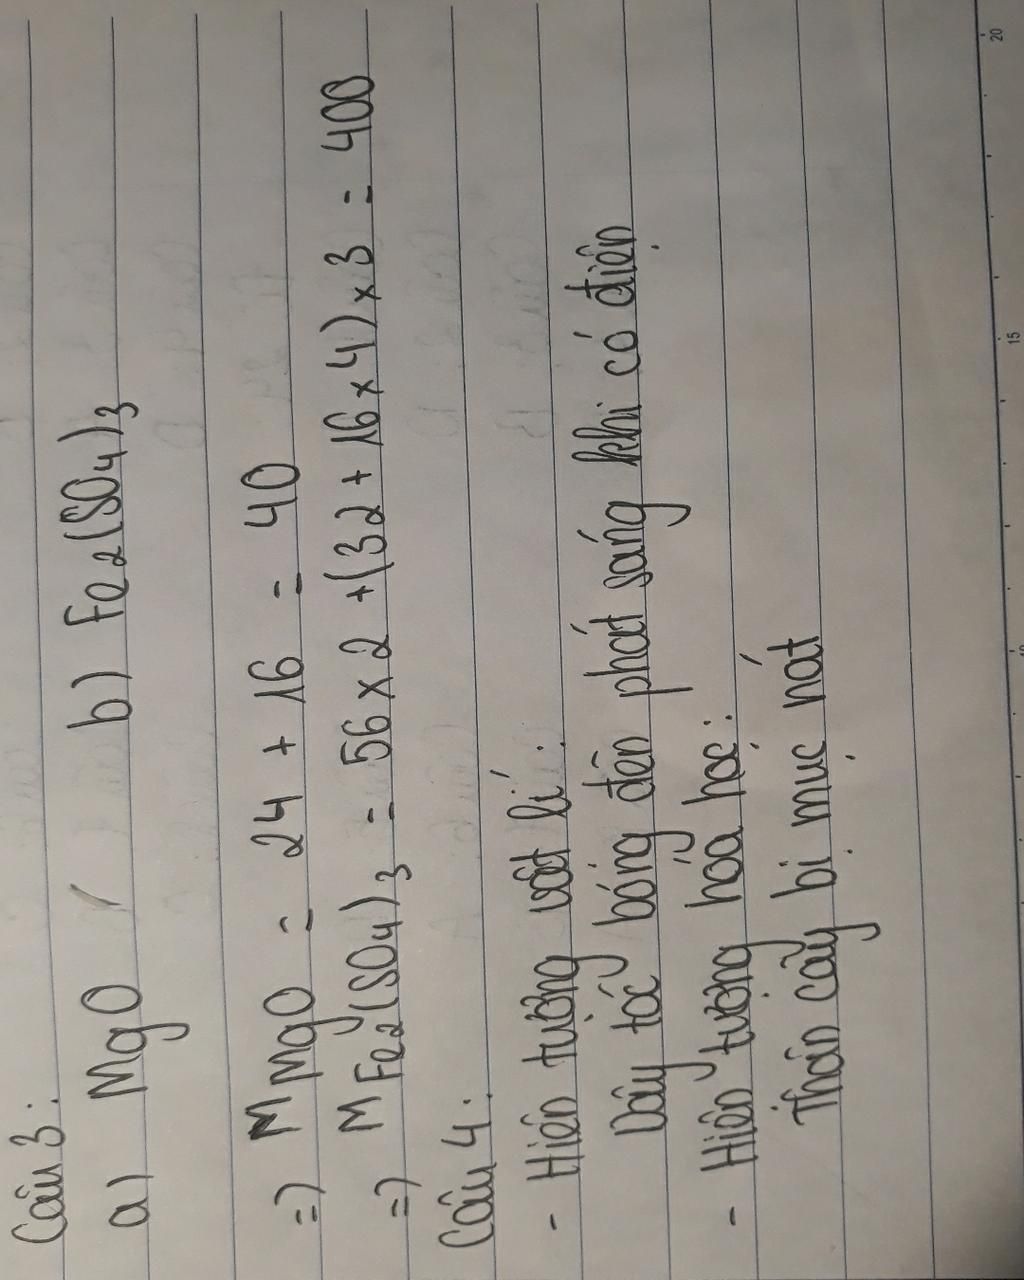 Câu 3:
a) MgO b) Fe₂(SO₄)₃
=) M MgO = 24 + 16 = 40
=) M Fe₂(SO₄)₃ = 56 x 2 + (32 + 16 x 4) x 3 = 400
Câu 4:
- Hiện tượng vật lí:
Dây tóc bóng đèn phát sáng khi có điện
- Hiện tượng hóa học:
Thân cây bị mục nát
20
15